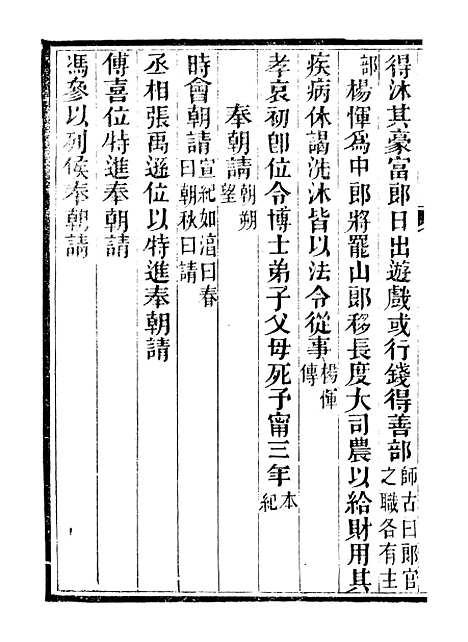 得沐其豪富郎日出遊戲或行錢得善部師古曰郎官之職各有主
部楊惲爲中郎將罷山郎移長度大司農以給財用其
疾病休謁洗沐皆以法令從事楊惲傳
孝哀初卽位令博士弟子父母死子甯三年本紀
奉朝請朝朔望
時會朝請宣紀如湻曰春曰朝秋曰請
丞相張禹遜位以特進奉朝請
傅喜位特進奉朝請
馮參以列侯奉朝請